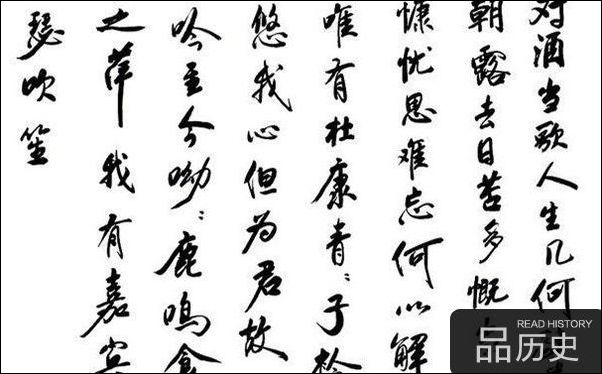 对酒当歌人生几何
朝露去日苦多慨
慷忧思难忘何以解
唯有杜康青〻子衿
悠我心但为君故
吟至今呦〻鹿鸣食
之苹我有嘉宾
瑟吹笙
READ HISTORY
品历史